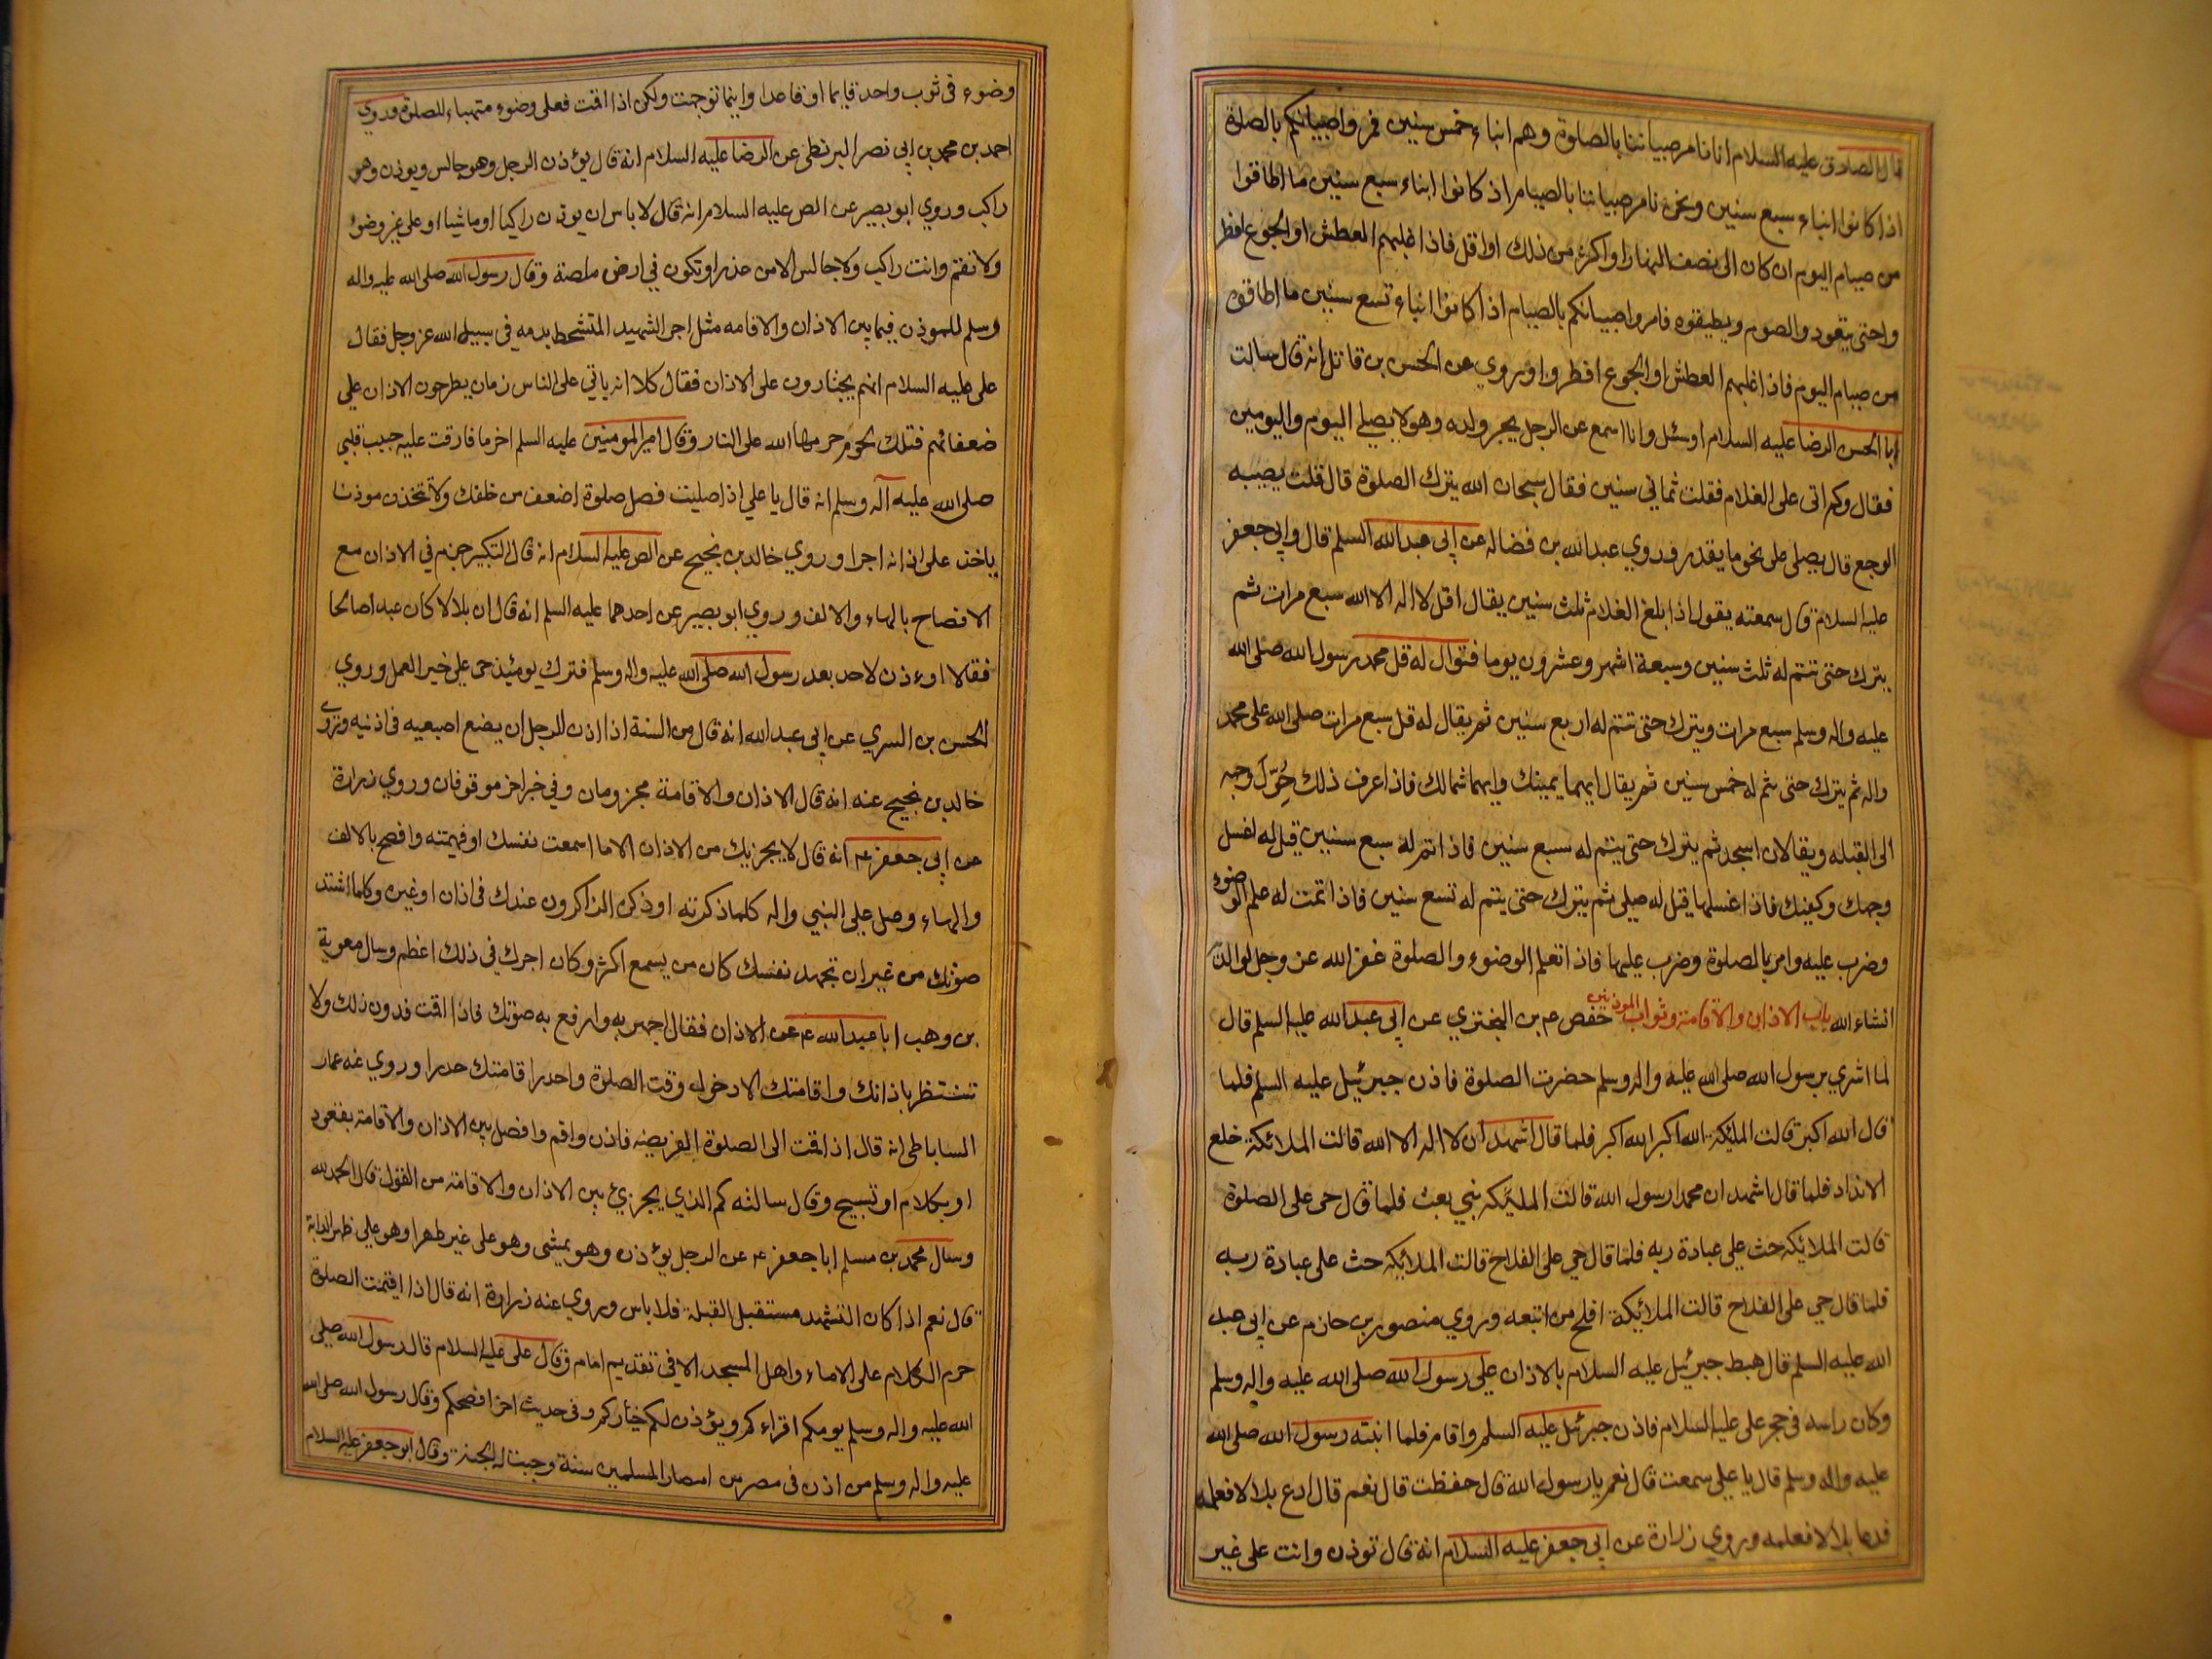 قال الصادق عليه السلام انا نامر صبياننا بالصلوة وهم ابناء خمس سنين فمروا صبيانكم بالصلوة
اذا كانوا ابناء سبع سنين ونحن نامر صبياننا بالصيام اذ كانوا ابناء سبع سنين ما اطاقوا
من صيام اليوم ان كان الى نصف النهار او اكثر من ذلك او اقل فاذا غلبهم العطش او الجوع افطر
وا حتى يتعود والصوم ويطيقوه فامروا صبيانكم بالصيام اذا كانوا ابناء تسع سنين ما اطاقوه
من صيام اليوم فاذا غلبهم العطش او الجوع افطروا وروي عن الحسن بن قاتل انه قال سالت
ابا الحسن الرضا عليه السلام او سئل وانا اسمع عن الرجل يجبر ولده وهو لا يصلي اليوم واليومين
فقال وكم اتى على الغلام فقلت ثماني سنين فقال سبحان الله يترك الصلوة قال قلت يصيبه
الوجع قال يصلي على نحو ما يقدر وروي عبد الله بن فضاله عن ابي عبد الله السلم قال وابي جعفر
عليه السلام قال سمعته يقول اذا بلغ الغلام ثلث سنين يقال اقل لا اله الا الله سبع مرات ثم
يترك حتى تتم له ثلث سنين وسبعة اشهر وعشرون يوما فتوال له قل محمد رسول الله صلى الله
عليه واله وسلم سبع مرات ويترك حتى تتم له اربع سنين ثم يقال له قل سبع مرات صلى الله على محمد
واله ثم يترك حتى يتم له خمس سنين ثم يقال ايهما يمينك وايهما شمالك فاذا عرف ذلك حُوِّلَ وجهه
الى القبله ويقال لان اسجد ثم يترك حتى يتم له سبع سنين فاذا تم له سبع سنين قيل له اغسل
وجهك وكفيك فاذا غسلها قيل له صلي ثم يترك حتى يتم له تسع سنين فاذا تمت له علم الوضوء
وضرب عليه وامر بالصلوة وضرب عليها فاذا تعلم الوضوء والصلوة غفر الله عز وجل لوالديه
انشاء الله باب الاذان والاقامة وثواب الموذنين حفص بن البختري عن ابي عبد الله عليه السلم قال
لما اشري برسول الله صلى الله عليه واله وسلم حضرت الصلوة فاذن جبرئيل عليه السلم فلما
قال الله اكبر قالت المليكة الله اكبر الله اكبر فلما قال اشهد ان لا اله الا الله قالت الملائكة خلع
الانداد فلما قال اشهد ان محمدا رسول الله قالت المليكة نبي بعث فلما قال حي على الصلوة
قالت الملائكة حث على عبادة ربه فلما قال حي على الفلاح قالت الملائكة حث على عبادة ربه
فلما قال حي على الفلاح قالت الملائيكة افلح من اتبعه وروي منصور بن حازم عن ابي عبد
الله عليه السلم قال هبط جبرئيل عليه السلام بالاذان علي رسول الله صلى الله عليه واله وسلم
وكان راسه في حجر علي عليه السلام فاذن جبرئيل عليه السلم واقام فلما انبته رسول الله صلى الله
عليه واله وسلم قال يا علي سمعت قال نعم يا رسول الله قال حفظت قال نعم قال ادع بلالا فعلمه
فدعا بلالا فعلمه وروي زرارة عن ابي جعفر عليه السلام انه قال توذن وانت على غير
وضوء في ثوب واحد قايما او قاعدا واينما توجهت ولكن اذا اقمت فعلى وضوء متهياء للصلوة وروي
احمد بن محمد بن ابي نصر البزنطي عن الرضا عليه السلام انه قال يؤذن الرجل وهو جالس ويوذن وهو
راكب وروي ابو بصير عن الص عليه السلام انه قال لا باس ان يوذن راكبا او ماشيا او على غير وضوء
ولا تقم وانت راكب ولا جالس الا من عذر او تكون في ارض ملصة وقال رسول الله صلى الله عليه واله
وسلم للموذن فيما بين الاذان والاقامه مثل اجر الشهيد المتشحط بدمه في سبيل الله عز وجل فقال
علي عليه السلام انهم يجتارون على الاذان فقال كلا انه ياتي على الناس زمان يطرحون الاذان علي
ضعفائهم فتلك لحوم حرمها الله على النار وقال امير المومنين عليه السلم اخر ما فارقت عليه حبيب قلبي
صلى الله عليه آله وسلم انه قال يا علي اذا صليت فصل صلوة اضعف من خلفك ولا تتخذن موذنا
ياخذ على اذانه اجرا وروي خالد بن نجيح عن الص عليه السلام انه قال التكبير جزم في الاذان مع
الافصاح بالهاء والالف وروي ابو بصير عن احدهما عليه السلم انه قال ان بلالا كان عبدا صالحا
فقال لا اوءذن لاحد بعد رسول الله صلى الله عليه واله وسلم فترك يومئذ حي على خير العمل وروي
الحسن بن السري عن ابي عبد الله انه قال من السنة اذا اذن الرجل ان يضع اصبعيه في اذنيه وتروى
خالد بن نجيح عنه انه قال الاذان والاقامة مجزومان وفي خبر اخر موقوفان وروي زرارة
عن ابي جعفر ع انه قال لا يجزيك من الاذان الا ما اسمعت نفسك او فهمته وافصح بالالف
والهاء وصل على النبي واله كلما ذكرته او ذكره الذاكرون عندك في اذان او غيره وكلما اشتد
صوتك من غير ان تجهد نفسك كان من يسمع اكثر وكان اجرك في ذلك اعظم وسال معوية
بن وهب ابا عبد الله ع عن الاذان فقال اجهر به وارفع به صوتك فاذا اقمت فدون ذلك ولا
تنتظر باذانك واقامتك الا دخول وقت الصلوة واحدر اقامتك حدرا وروي عنه عمار
الساباطي انه قال اذا قمت الى الصلوة الفريضه فاذن واقم وافصل بين الاذان والاقامة بقعود
او بكلام او تسبيح وقال سالته كم الذي يجزئ بين الاذان والاقامة من القول قال الحمد لله
وسال محمد بن مسلم ابا جعفر ع عن الرجل يؤذن وهو يمشي وهو على غير طهر او هو علي ظهر الدابة
قال نعم اذا كان التشهد مستقبل القبلة فلا باس وروي عنه زرارة انه قال اذا اقيمت الصلوة
حرم الكلام على الاماء واهل المسجد الا في تقديم امام وقال علي عليه السلام قال رسول الله صلى
الله عليه واله وسلم يومكم اقراءكم ويؤذن لكم خياركم وفي حديث اخر افصحكم وقال رسول الله صلى الله
عليه واله وسلم من اذن في مصر من امصار المسلمين سنة وجبت له الجنة وقال ابو جعفر عليه السلام